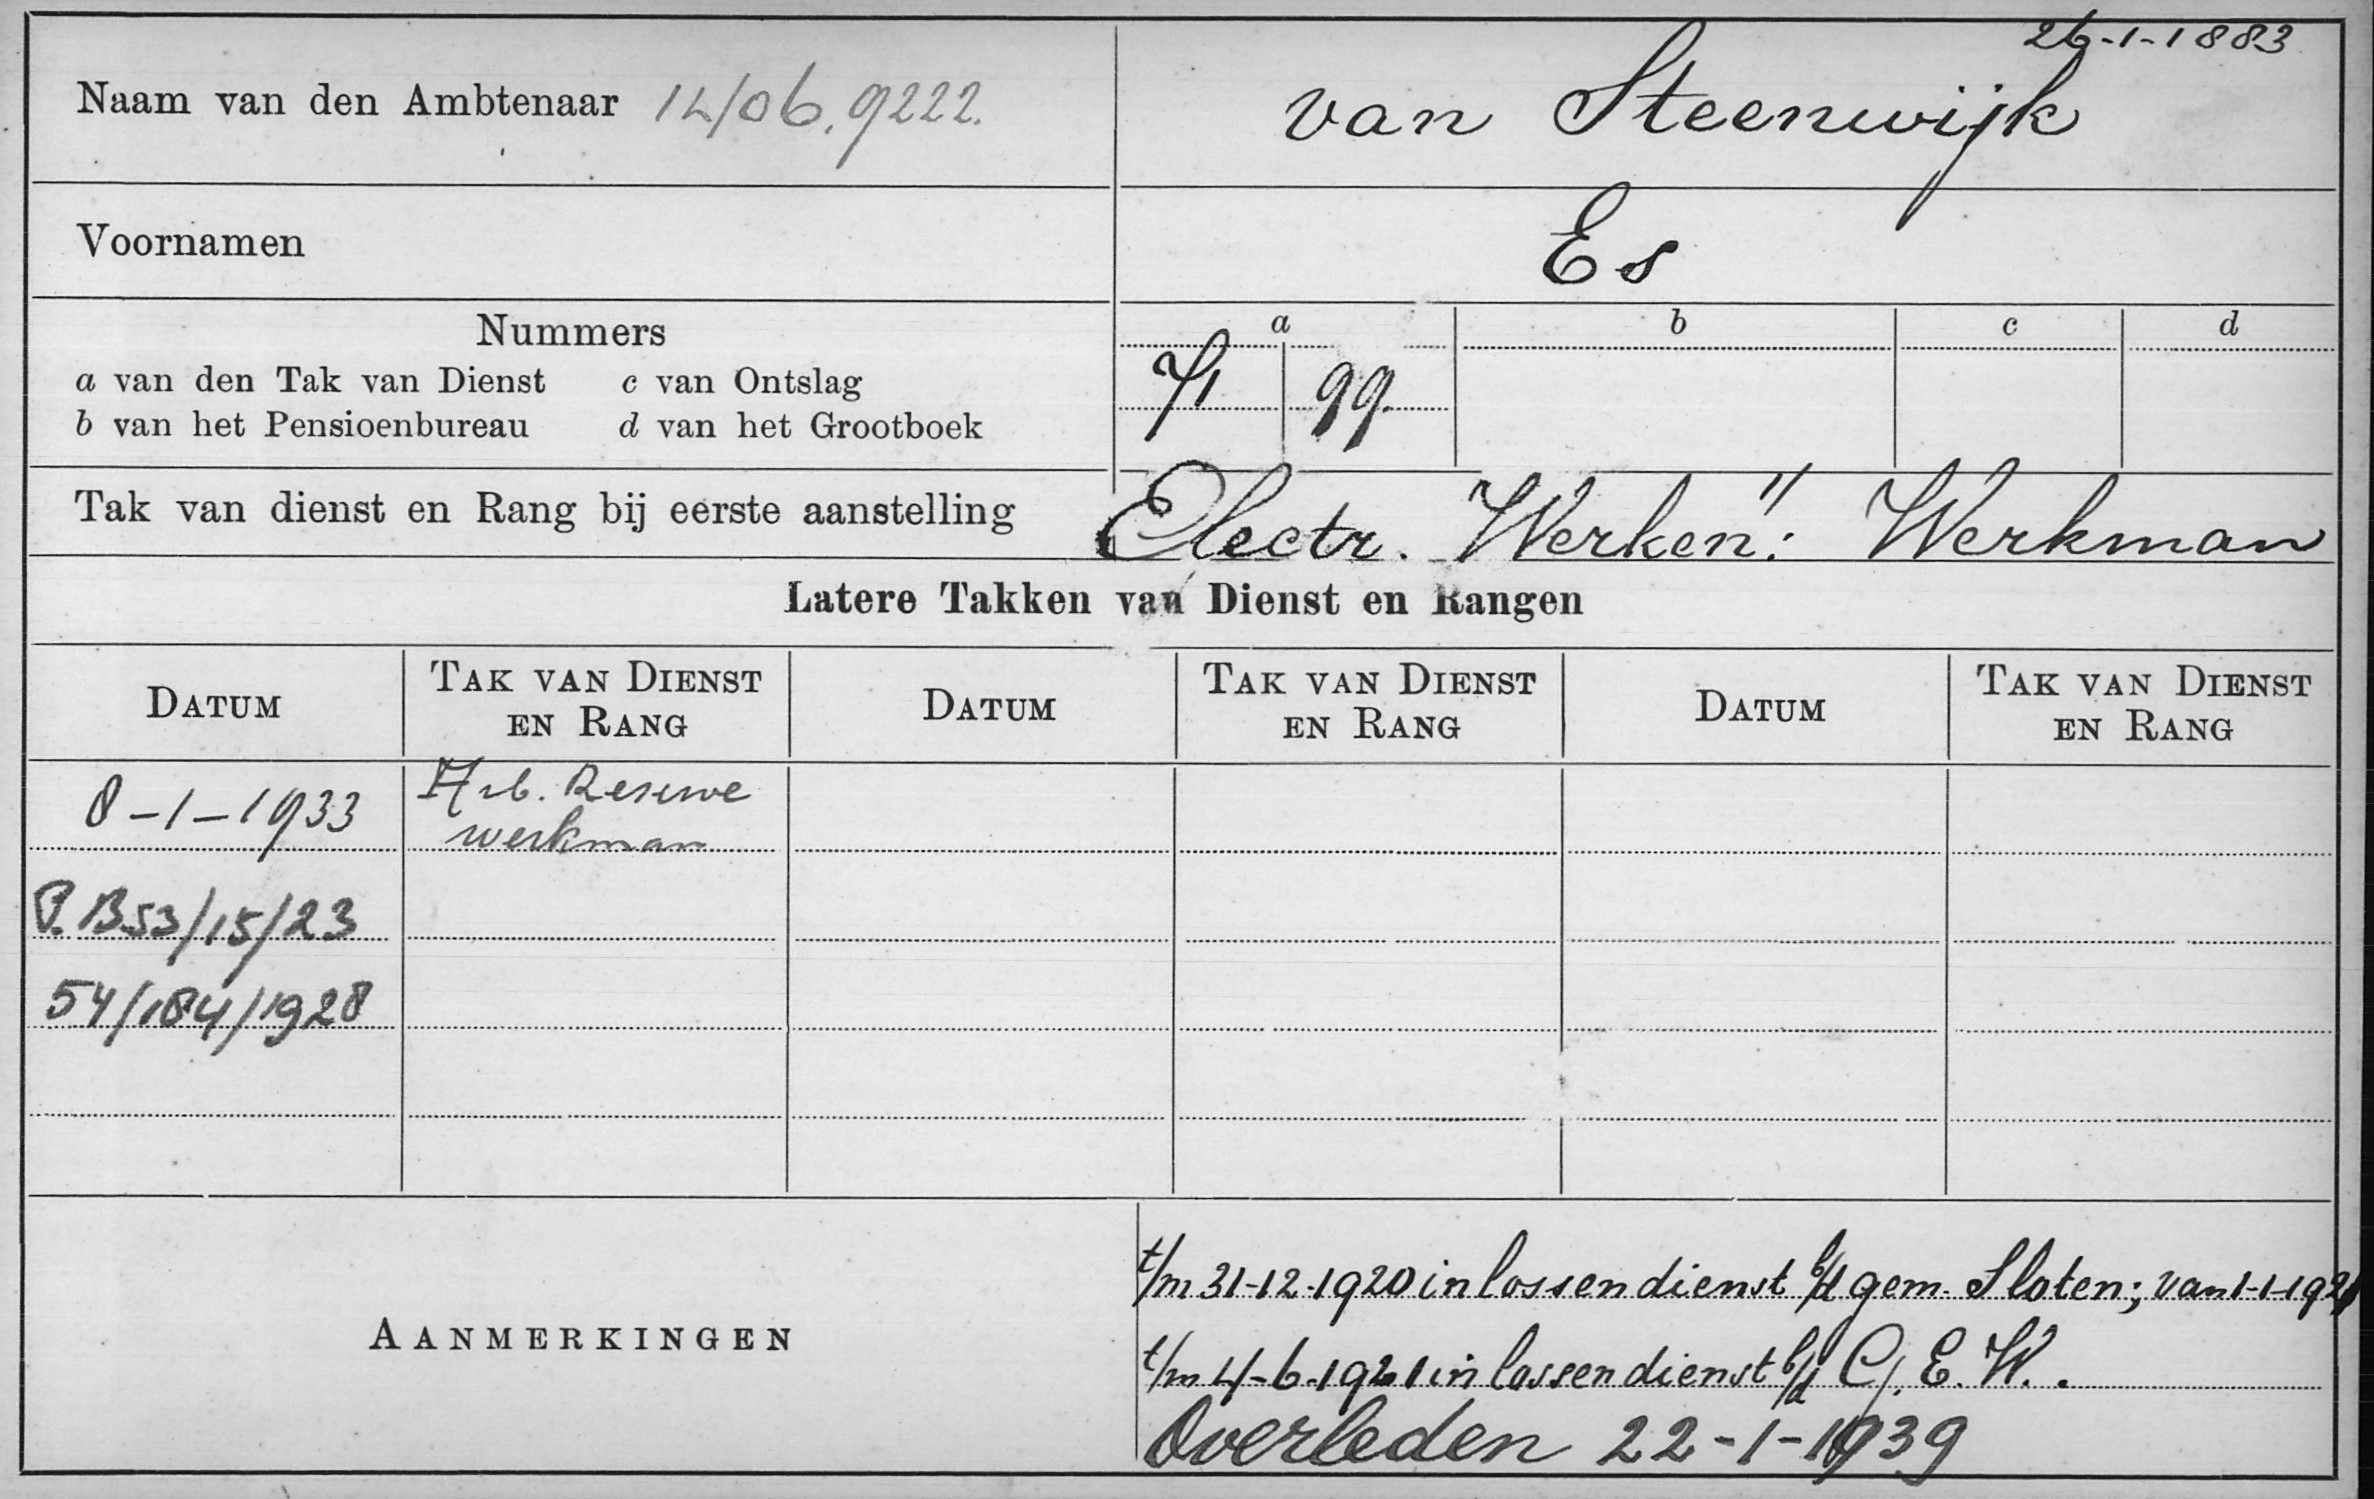 26-1-1883
Naam van den Ambtenaar 14/06.9222. van Steenwijk
Voornamen Es
Nummers
a b c d
a van den Tak van Dienst c van Ontslag
b van het Pensioenbureau d van het Grootboek
71 99.
Tak van dienst en Rang bij eerste aanstelling Electr. Werken": Werkman
Latere Takken van Dienst en Rangen
DATUM TAK VAN DIENST EN RANG DATUM TAK VAN DIENST EN RANG DATUM TAK VAN DIENST EN RANG
8-1-1933 Arb. Reserve
werkman
P.B53/15/23
54/184/1928
AANMERKINGEN
t/m 31-12-1920 in lossen dienst b/d gem. Sloten; van 1-1-1921
t/m 4-6-1921 in lossen dienst b/d G.E.W.
Overleden 22-1-1939